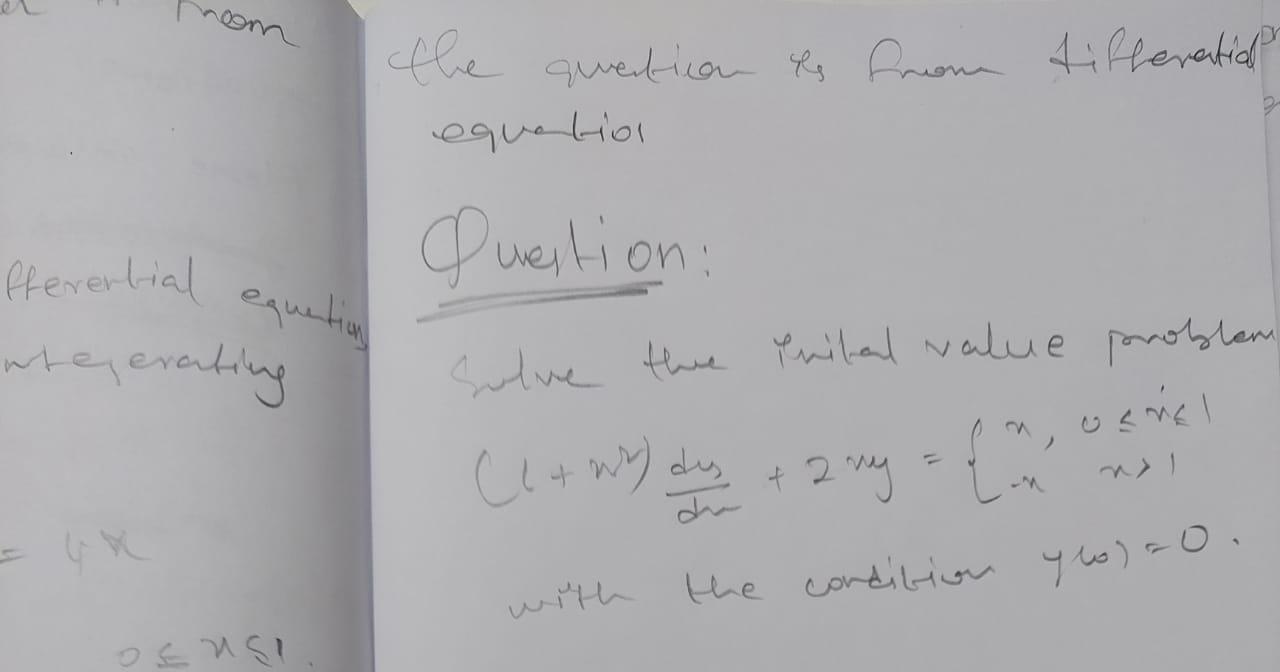 room
fferential equation
integerating
= 4x
0 ≤ x ≤ 1.
the question is from differential
equation
Question:
Solve the initial value problem
(1 + x²) dy/dx + 2xy = { x, 0 ≤ x ≤ 1
-x x > 1
with the condition y(0) = 0.